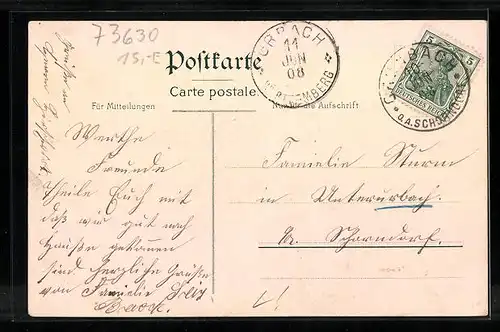 73630
15,-E
Postkarte
Carte postale.
Für Mitteilungen
Nur für die Aufschrift
URBACH
11
JUN
08
WÜRTTEMBERG
URBACH
O.A. SCHORNDORF
5
5
DEUTSCHES REICH
Werthe
Freunde
Theile Euch mit
daß wir gut nach
Hauße gekommen
sind. herzliche Grüße
von Familie
Familie Sturm
in Unterurbach.
Schorndorf.